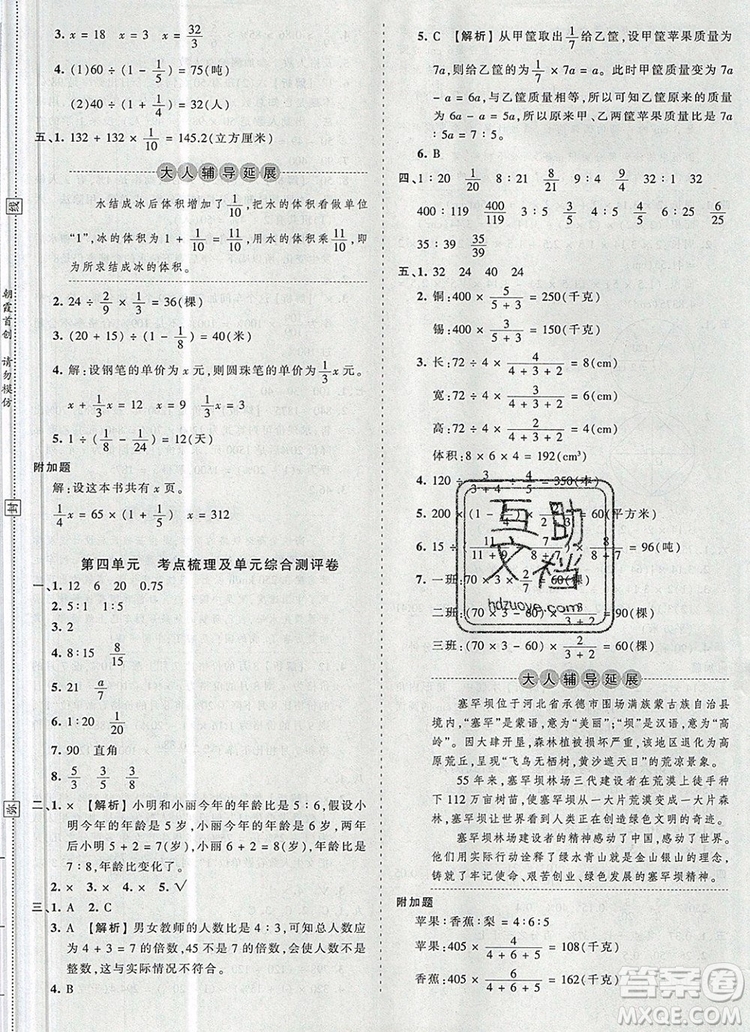 3. x=18 x=3 x=32/3
4. (1)60÷(1-1/5)=75(吨)
(2)40÷(1+1/4)=32(人)
五、1. 132+132×1/10=145.2(立方厘米)
大人辅导延展
水结成冰后体积增加了1/10,把水的体积看做单位
“1”,冰的体积为1+1/10=11/10,用水的体积乘11/10,即
为所求结成冰的体积。
2. 24÷2/9×1/3=36(棵)
3. (20+15)÷(1-1/8)=40(米)
4. 解:设钢笔的单价为x元,则圆珠笔的单价为1/3x元。
x+1/3x=12 x=9 1/3x=3
5. 1÷(1/8-1/24)=12(天)
附加题
解:设这本书共有x页。
1/4x=65×(1-1/5) x=312
第四单元 考点梳理及单元综合测评卷
一、1. 12 6 20 0.75
2. 5:1
3. 2
4. 8:15 8/15
5. 21 a/7
6. 1:20 1/20
7. 90 直角
8. 5/3 3/5 2/5
二、1. × 【解析】小明和小丽今年的年龄比是5:6,假设
小明今年的年龄为5岁,小丽今年的年龄为6岁,两年
后小明的年龄为7岁,小丽的年龄为8岁,年龄比为
7:8,年龄比变化了。
2. × 3. × 4. × 5. √
三、1. A 2. C
3. A 【解析】男女教师的人数比是4:3,可知总人数应
为4+3=7的倍数,45不是7的倍数,人数不是整数,这
与实际情况不符合。
4. B
5. C 【解析】从甲筐取出1/7给乙筐,设甲筐苹果质量为
7a,则给乙筐1/7×7a=a。此时甲、乙两筐质量相等,为
7a-a=6a,乙筐质量在增加a千克后为6a,则原来为
6a-a=5a,所以原来甲、乙两筐苹果质量比是
7a:5a=7:5。
6. B
四、1:20 1/20 8:21 8/21 9:32 9/32
400:119 400/119 4:5 4/5 6:5 6/5
35:39 35/39
五、1. 32 24 40 24
2. 铜:400×5/(5+3)=250(千克)
锡:400×3/(5+3)=150(千克)
3. 长:72÷4×4/(4+3+2)=8(cm)
宽:72÷4×3/(4+3+2)=6(cm)
高:72÷4×2/(4+3+2)=4(cm)
体积:8×6×4=192(cm³)
=350(本)
5. 200
=600(平方米)
6. 16÷
=96(吨)
7. 一班:(70×3-60)×2/7=60(棵)
二班:(70×3-60)×
=90(棵)
三班:70×3-60=60(棵)
大人辅导延展
塞罕坝位于河北省承德市围场满族蒙古族自治县
境内,“塞罕”是蒙语,意为“美丽”;“坝”是汉语,意为“高
岭”。因大肆开垦,森林植被损坏严重,塞罕坝变成了高
原荒丘,呈现“飞鸟无栖树,黄沙遮天日”的荒凉景象。
55年来,塞罕坝林场三代建设者在荒漠上徒手种
下112万亩树,森林创造了沙地变林海、荒原成绿洲的
绿色奇迹,让世界看到了中国绿色文明的奇迹。
塞罕坝林场建设者的精神感动了中国,感动了世界,
他们用实际行动诠释了绿水青山就是金山银山的理念,
铸就了牢记使命、艰苦创业、绿色发展的塞罕坝精神。
附加题
苹果:香蕉:梨=4:6:5
苹果:405×4/(4+6+5)=108(千克)
香蕉:405×6/(4+6+5)=162(千克)
线
封
朝霞首创 请勿模仿
互助文档
hdzuoye.com
答案圈
MXQE.COM